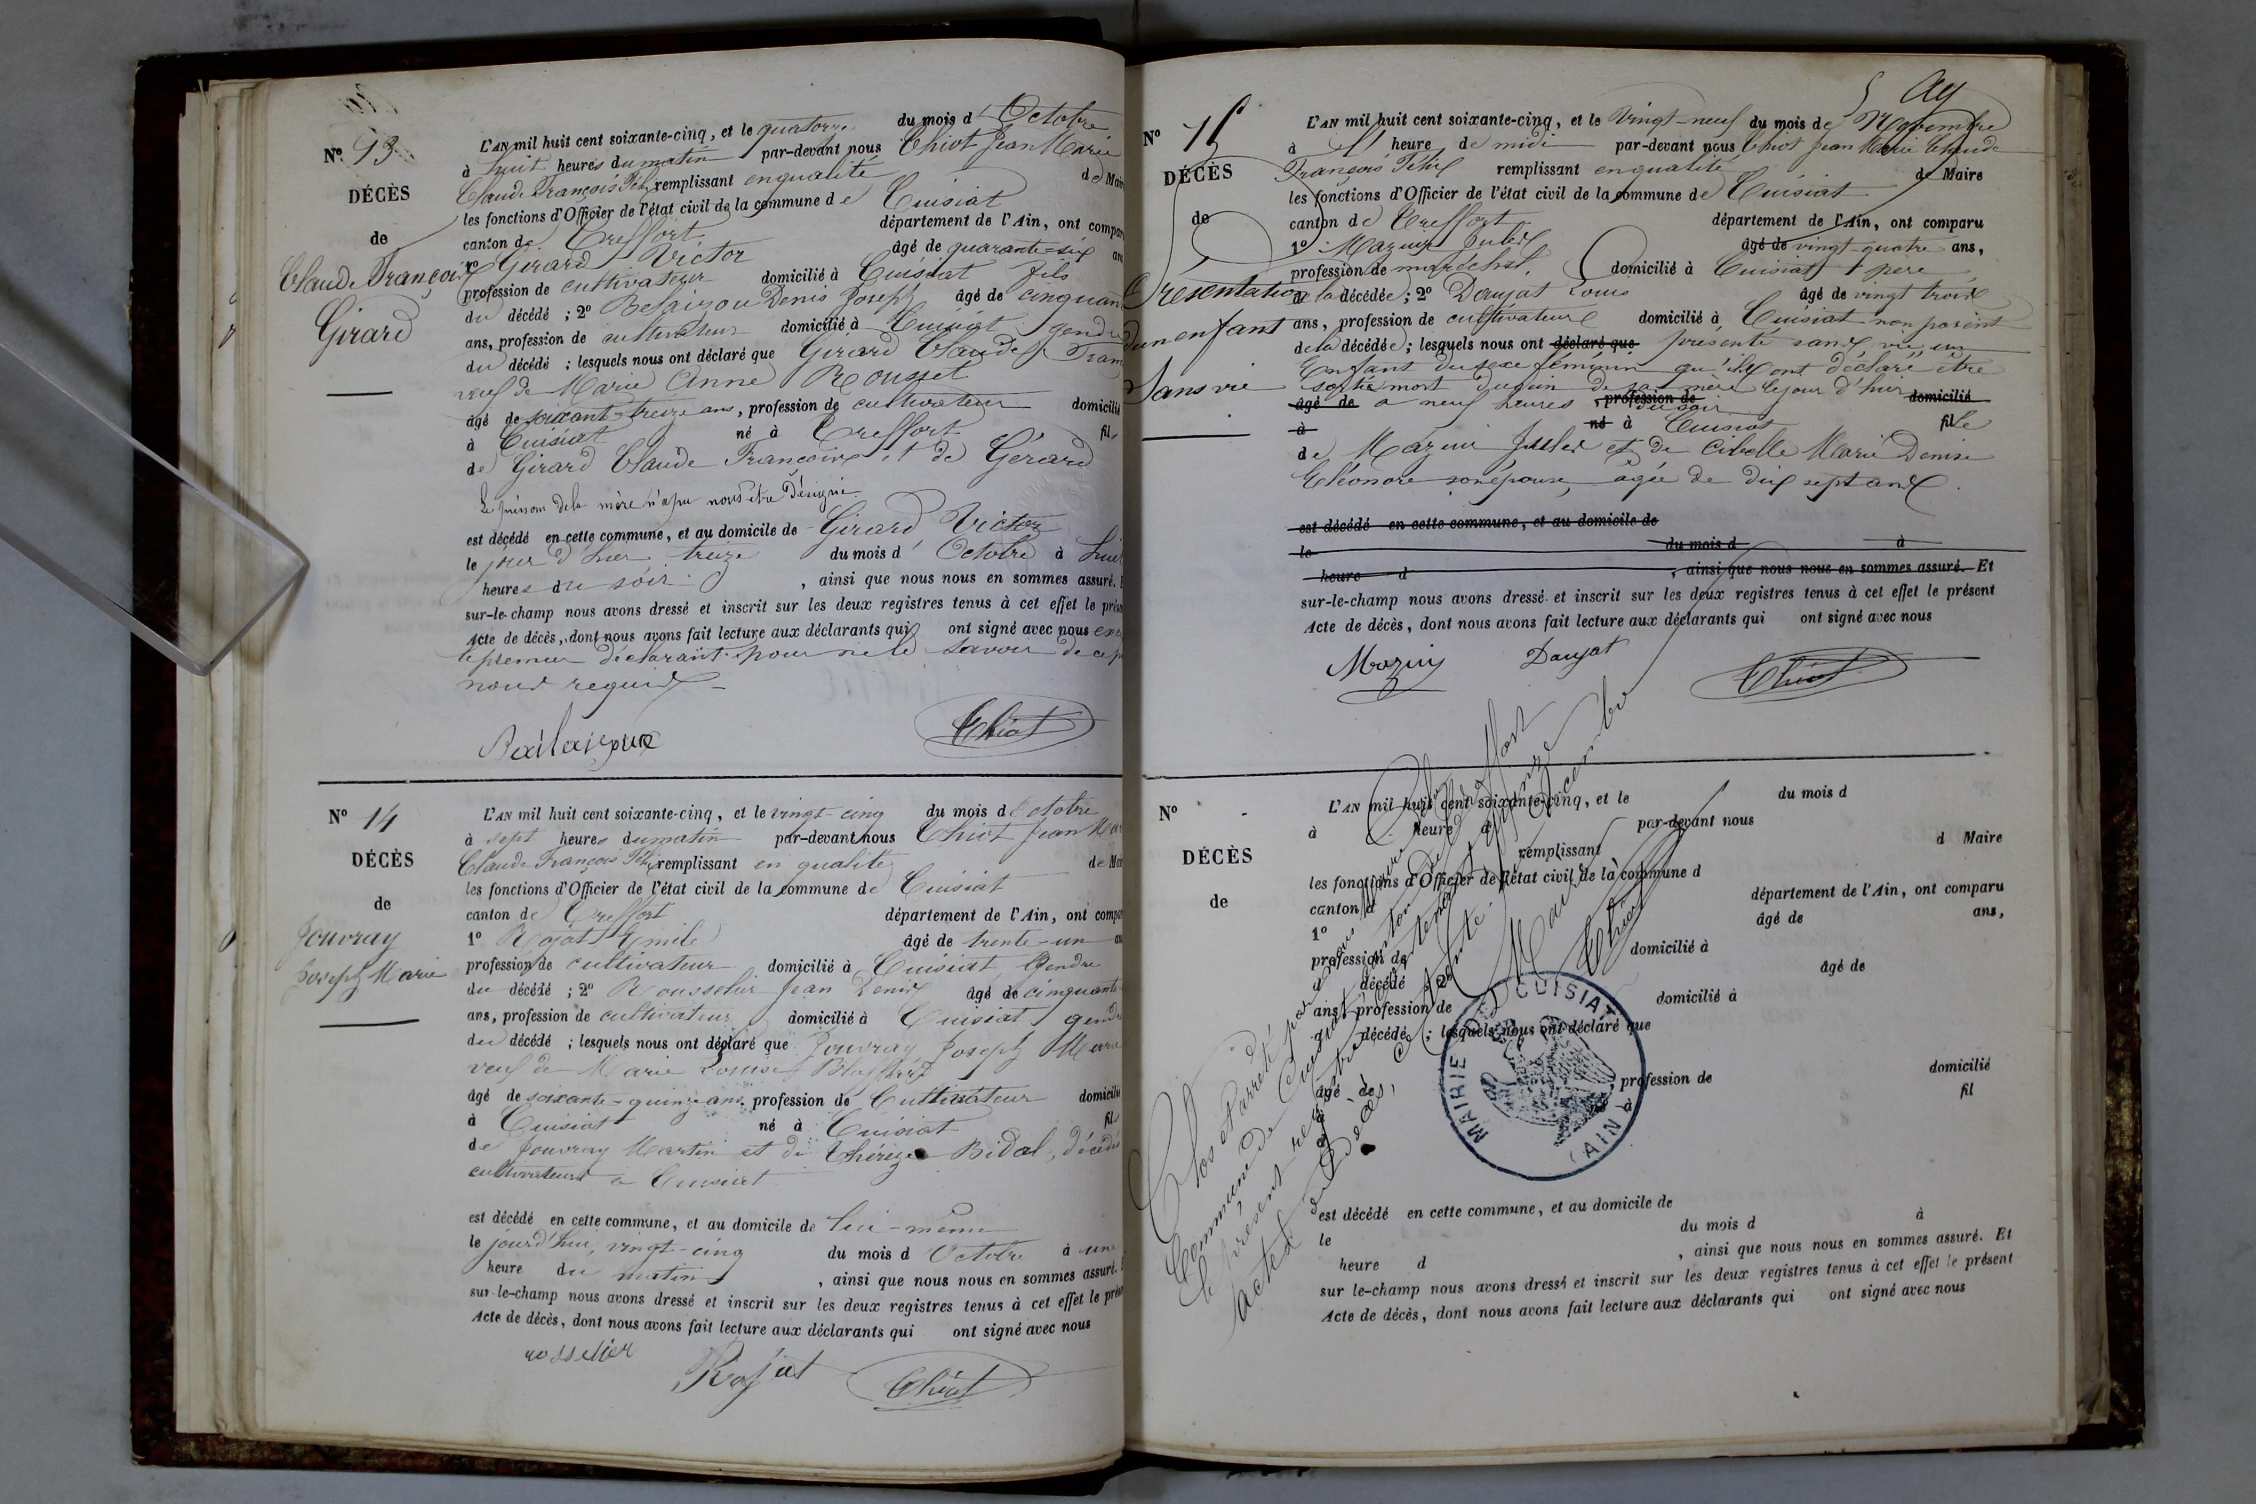 Nº 13
DÉCÈS
de
Claude François
Girard
L'AN mil huit cent soixante-cinq, et le quatorze du mois d'Octobre
à huit heures du matin par-devant nous Chiot Jean Marie
Claude François Félix remplissant en qualité de Mair
les fonctions d'Officier de l'état civil de la commune de Cuisiat
canton de Treffort département de l'Ain, ont compar
1º Girard Victor âgé de quarante-six ans
profession de cultivateur domicilié à Cuisiat fils
du décédé ; 2º Denis Joseph âgé de cinquan
ans, profession de cultivateur domicilié à Cuisiat gendre
du décédé ; lesquels nous ont déclaré que Girard Claude Fran
veuf de Marie Anne Rousset
âgé de soixante-treize ans, profession de cultivateur domicilié
à Cuisiat né à Treffort fils
de Girard Claude François et de Gérard
Le prénom de la mère n'a pu nous être désigné.
est décédé en cette commune, et au domicile de Girard Victor
le jour d'hier treize du mois d'Octobre à huit
heures du soir , ainsi que nous nous en sommes assuré. E
sur-le-champ nous avons dressé et inscrit sur les deux registres tenus à cet effet le prése
Acte de décès, dont nous avons fait lecture aux déclarants qui ont signé avec nous
le premier déclarant pour ne le savoir de ce p
nous requis
Chiot
Nº 14
DÉCÈS
de
Jouvray
Joseph Marie
L'AN mil huit cent soixante-cinq, et le vingt-cinq du mois d'Octobre
à sept heures du matin par-devant nous Chiot Jean Mar
Claude François Félix remplissant en qualité de Mai
les fonctions d'Officier de l'état civil de la commune de Cuisiat
canton de Treffort département de l'Ain, ont compa
1º Rojat Emile âgé de trente-un an
profession de cultivateur domicilié à Cuisiat Gendre
du décédé ; 2º Rousselier Jean Denis âgé de cinquante
ans, profession de cultivateur domicilié à Cuisiat gendre
du décédé ; lesquels nous ont déclaré que Jouvray Joseph Marie
veuf de Marie Louise
âgé de soixante-quinze ans, profession de Cultivateur domicilié
à Cuisiat né à Cuisiat fils
de Jouvray Martin et de Thérèze Bidal, décédés
cultivateurs à Cuisiat
est décédé en cette commune, et au domicile de lui-même
le jour d'hui, vingt-cinq du mois d'Octobre à une
heure du matin , ainsi que nous nous en sommes assuré. E
sur-le-champ nous avons dressé et inscrit sur les deux registres tenus à cet effet le prése
Acte de décès, dont nous avons fait lecture aux déclarants qui ont signé avec nous
rosselier Rojat Chiot
Nº 15
DÉCÈS
de
Présentation
d'un enfant
Sans vie
L'AN mil huit cent soixante-cinq, et le vingt-neuf du mois de Novembre
à heure de midi par-devant nous Chiot Jean Marie Claude
François Félix remplissant en qualité de Maire
les fonctions d'Officier de l'état civil de la commune de Cuisiat
canton de Treffort département de l'Ain, ont comparu
1º Mazuir Jules âgé de vingt-quatre ans,
profession de maréchal, domicilié à Cuisiat père
de la décédée ; 2º Daujat Louis âgé de vingt trois
ans, profession de cultivateur domicilié à Cuisiat non parent
de la décédée ; lesquels nous ont déclaré que présenté sans vie un
Enfant du sexe féminin qu'ils ont déclaré être
sortie mort du sein de sa mère le jour d'hier
âgé de à neuf heures du soir profession de domicilié
à né à Cuisiat fille
de Mazuir Jules et de Cibelle Marie Denise
Eléonore son épouse, âgée de dix sept ans.
est décédé en cette commune, et au domicile de
le du mois d à
heure d , ainsi que nous nous en sommes assuré. Et
sur-le-champ nous avons dressé et inscrit sur les deux registres tenus à cet effet le présent
Acte de décès, dont nous avons fait lecture aux déclarants qui ont signé avec nous
Mazuir Daujat Chiot
Nº
DÉCÈS
de
L'AN mil huit cent soixante-cinq, et le du mois d
à heure d par-devant nous
remplissant d Maire
les fonctions d'Officier de l'état civil de la commune d
canton d département de l'Ain, ont comparu
1º âgé de ans,
profession de domicilié à
d décédé ; 2º âgé de
ans, profession de domicilié à
d décédé ; lesquels nous ont déclaré que
âgé de profession de domicilié
à né à fil
d
est décédé en cette commune, et au domicile de
le du mois d à
heure d , ainsi que nous nous en sommes assuré. Et
sur le-champ nous avons dressé et inscrit sur les deux registres tenus à cet effet le présent
Acte de décès, dont nous avons fait lecture aux déclarants qui ont signé avec nous
Clos et arrêté par nous Maire de la
Commune de Cuisiat canton de Treffort
le présent registre contenant quinze
actes de décès, Décembre
Chiot
MAIRIE DE CUISIAT
(AIN)